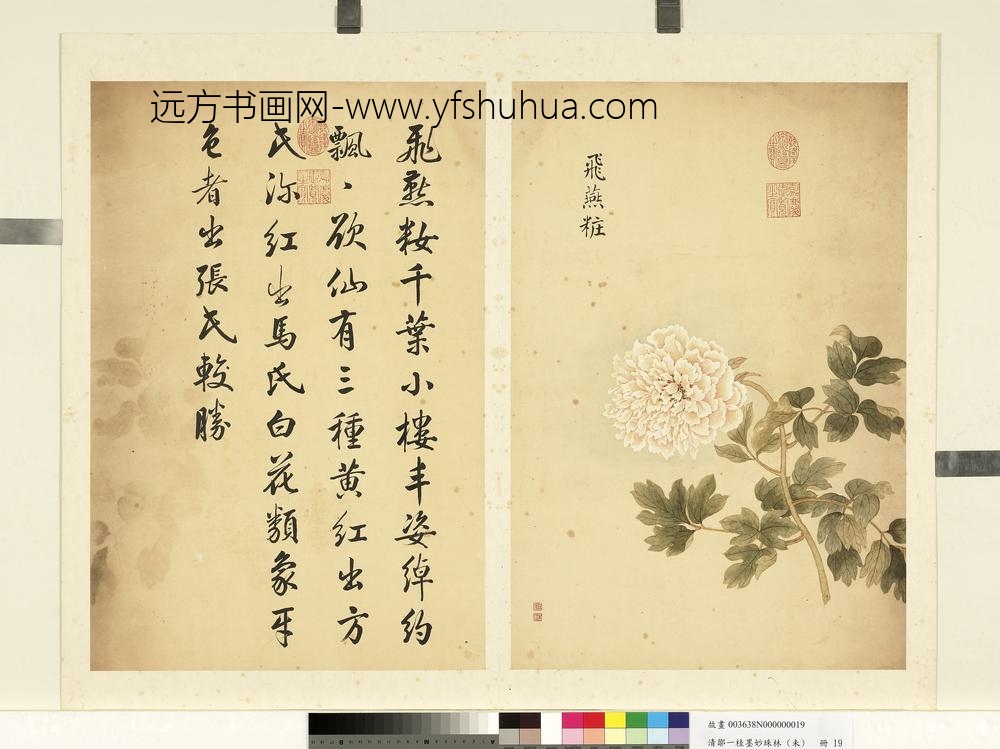 远方书画网-www.yfshuhua.com
飛燕粧
飛燕妝千葉小樓丰姿綽約
飄、欲仙有三種黄紅出方
氏深紅出馬氏白花類象牙
色者出張氏較勝
故畫 003638N000000019
清鄒一桂墨妙珠林（未） 冊 19